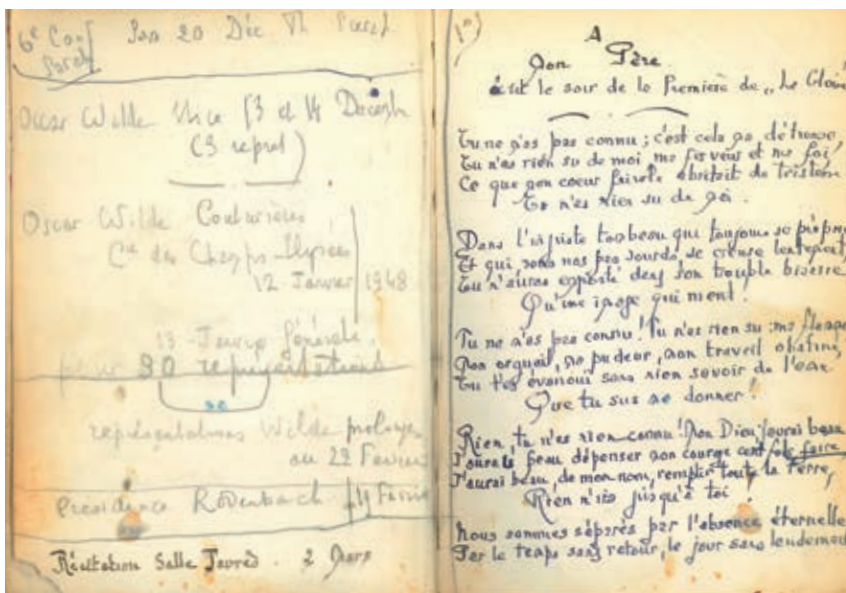 6e
20 Déc
Oscar Wilde Nice 13 et 14 Décemb
(3 repret)
Oscar Wilde Couturières
Cie des Champs-Elysées
12 Janvier 1948
13 - Janvier Générale
80 représentations
représentations Wilde
au 22 Février
Présidence Rodenbach
Récitation Salle 2 Mars
A
Mon Père
écrit le soir de la Première de "La Gloire
Tu ne m'as pas connu ; c'est cela ma détresse,
Tu n'as rien su de moi ma ferveur et ma foi,
Ce que mon coeur frivole abritait de tristesse
Tu n'as rien su de moi.
Dans l'injuste tombeau qui toujours se
Et qui sous nos pas sourds, se creuse lentement,
Tu n'auras emporté dans son trouble bizarre
Qu'une image qui ment !
Tu ne m'as pas connu ! Tu n'as rien su ma flamme
Mon orgueil, ma pudeur, mon travail obstiné,
Tu t'es évanoui sans rien savoir de l'âme
Que tu sus me donner !
Rien, tu n'as rien connu ! Mon Dieu, j'aurai beau
J'aurai beau dépenser mon courage cent fois
J'aurai beau, de mon nom, remplir toute la Terre,
Rien n'ira jusqu'à toi !
Nous sommes séparés par l'absence éternelle
Par le temps sans retour, le jour sans lendemain